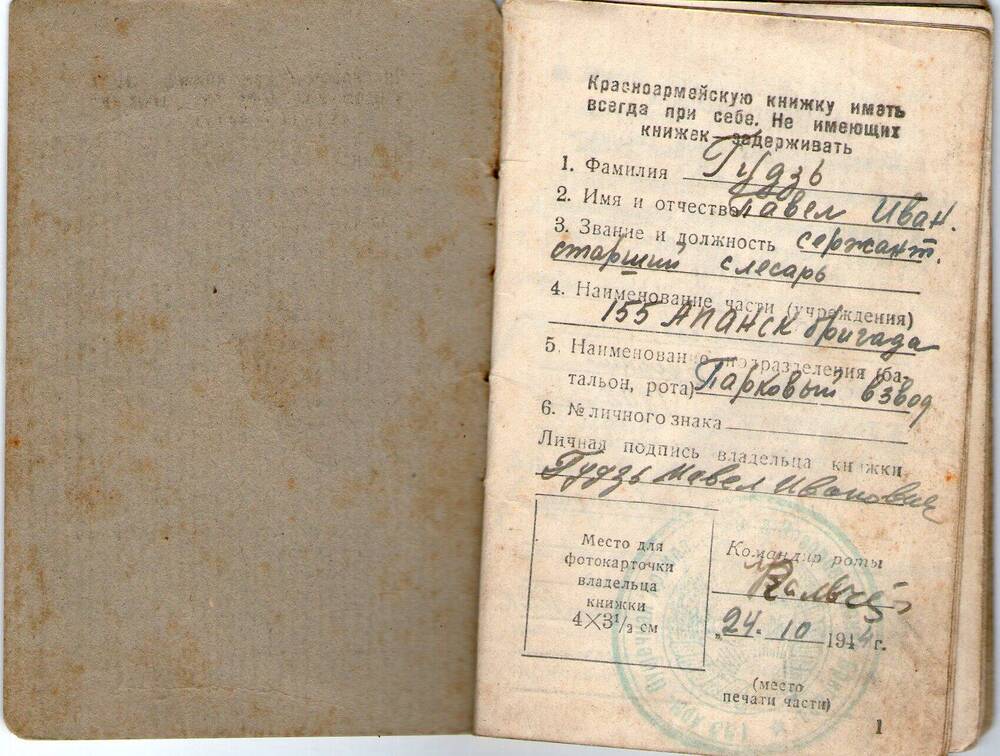 Красноармейскую книжку иметь
всегда при себе. Не имеющих
книжек—задерживать
1. Фамилия Гудзь
2. Имя и отчество Павел Иван.
3. Звание и должность сержант.
старший слесарь
4. Наименование части (учреждения)
155 АПАНСК бригада
5. Наименование подразделения (ба-
тальон, рота) Парковый взвод
6. № личного знака
Личная подпись владельца книжки
Гудзь Павел Иванович
Место для
фотокарточки
владельца
книжки
4×3½ см
Командир роты
„24. 10 1944 г.
(место
печати части)
1